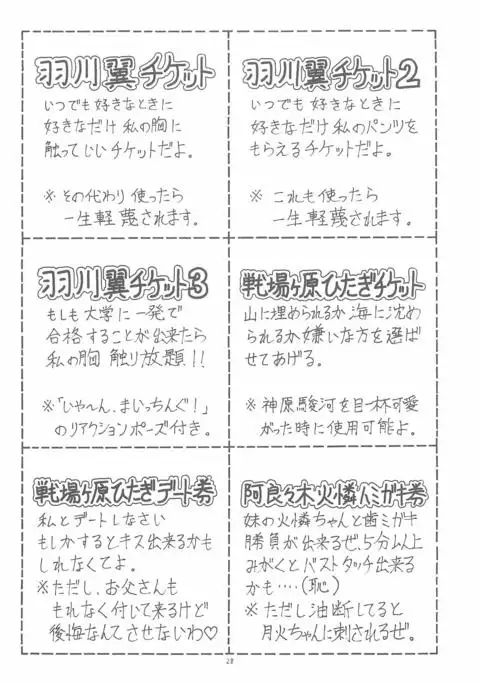 羽川翼チケット
いつでも好きなときに
好きなだけ私の胸に
触っていいチケットだよ。
※その代わり使ったら
一生軽蔑されます。
羽川翼チケット2
いつでも好きなときに
好きなだけ私のパンツを
もらえるチケットだよ。
※ これも使ったら
一生軽蔑されます。
羽川翼チケット3
もしも大学に一発で
合格することが出来たら
私の胸触り放題!!
※「ひゃ~ん、まいっちんぐ!」
のリアクションポーズ付き。
戦場ヶ原ひたぎチケット
山に埋められるか海に沈め
られるか嫌いな方を選ば
せてあげる。
※神原駿河を目一杯可愛
がった時に使用可能よ。
戦場ヶ原ひたぎデート券
私とデートしなさい
もしかするとキス出来るかも
しれなくてよ。
※ただし、お父さんも
もれなく付いて来るけど
後悔なんてさせないわ♡
阿良々木火憐ハミガキ券
妹の火憐ちゃんと歯ミガキ
勝負が出来るぜ、5分以上
みがくとバストタッチ出来る
かも‥‥(恥)
※ただし油断してると
月火ちゃんに刺されるぜ。
28